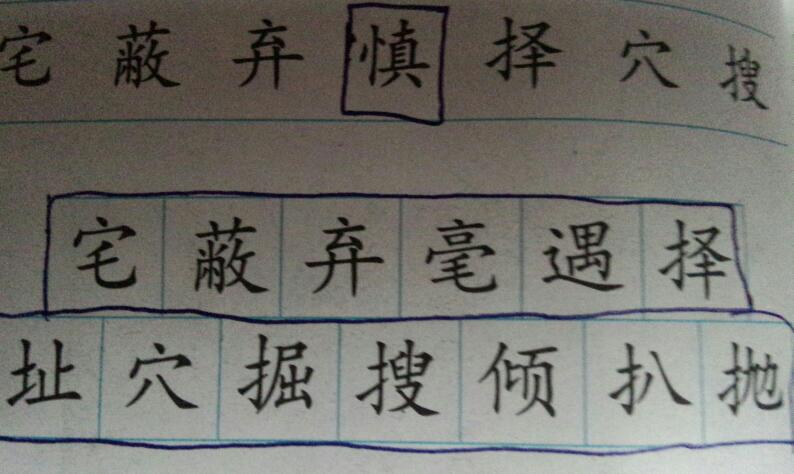 宅 蔽 弃 慎 择 穴 搜
宅 蔽 弃 毫 遇 择
址 穴 掘 搜 倾 扒 抛